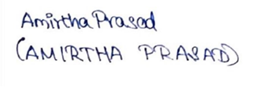 Amirtha Prasad
(AMIRTHA PRASAD)